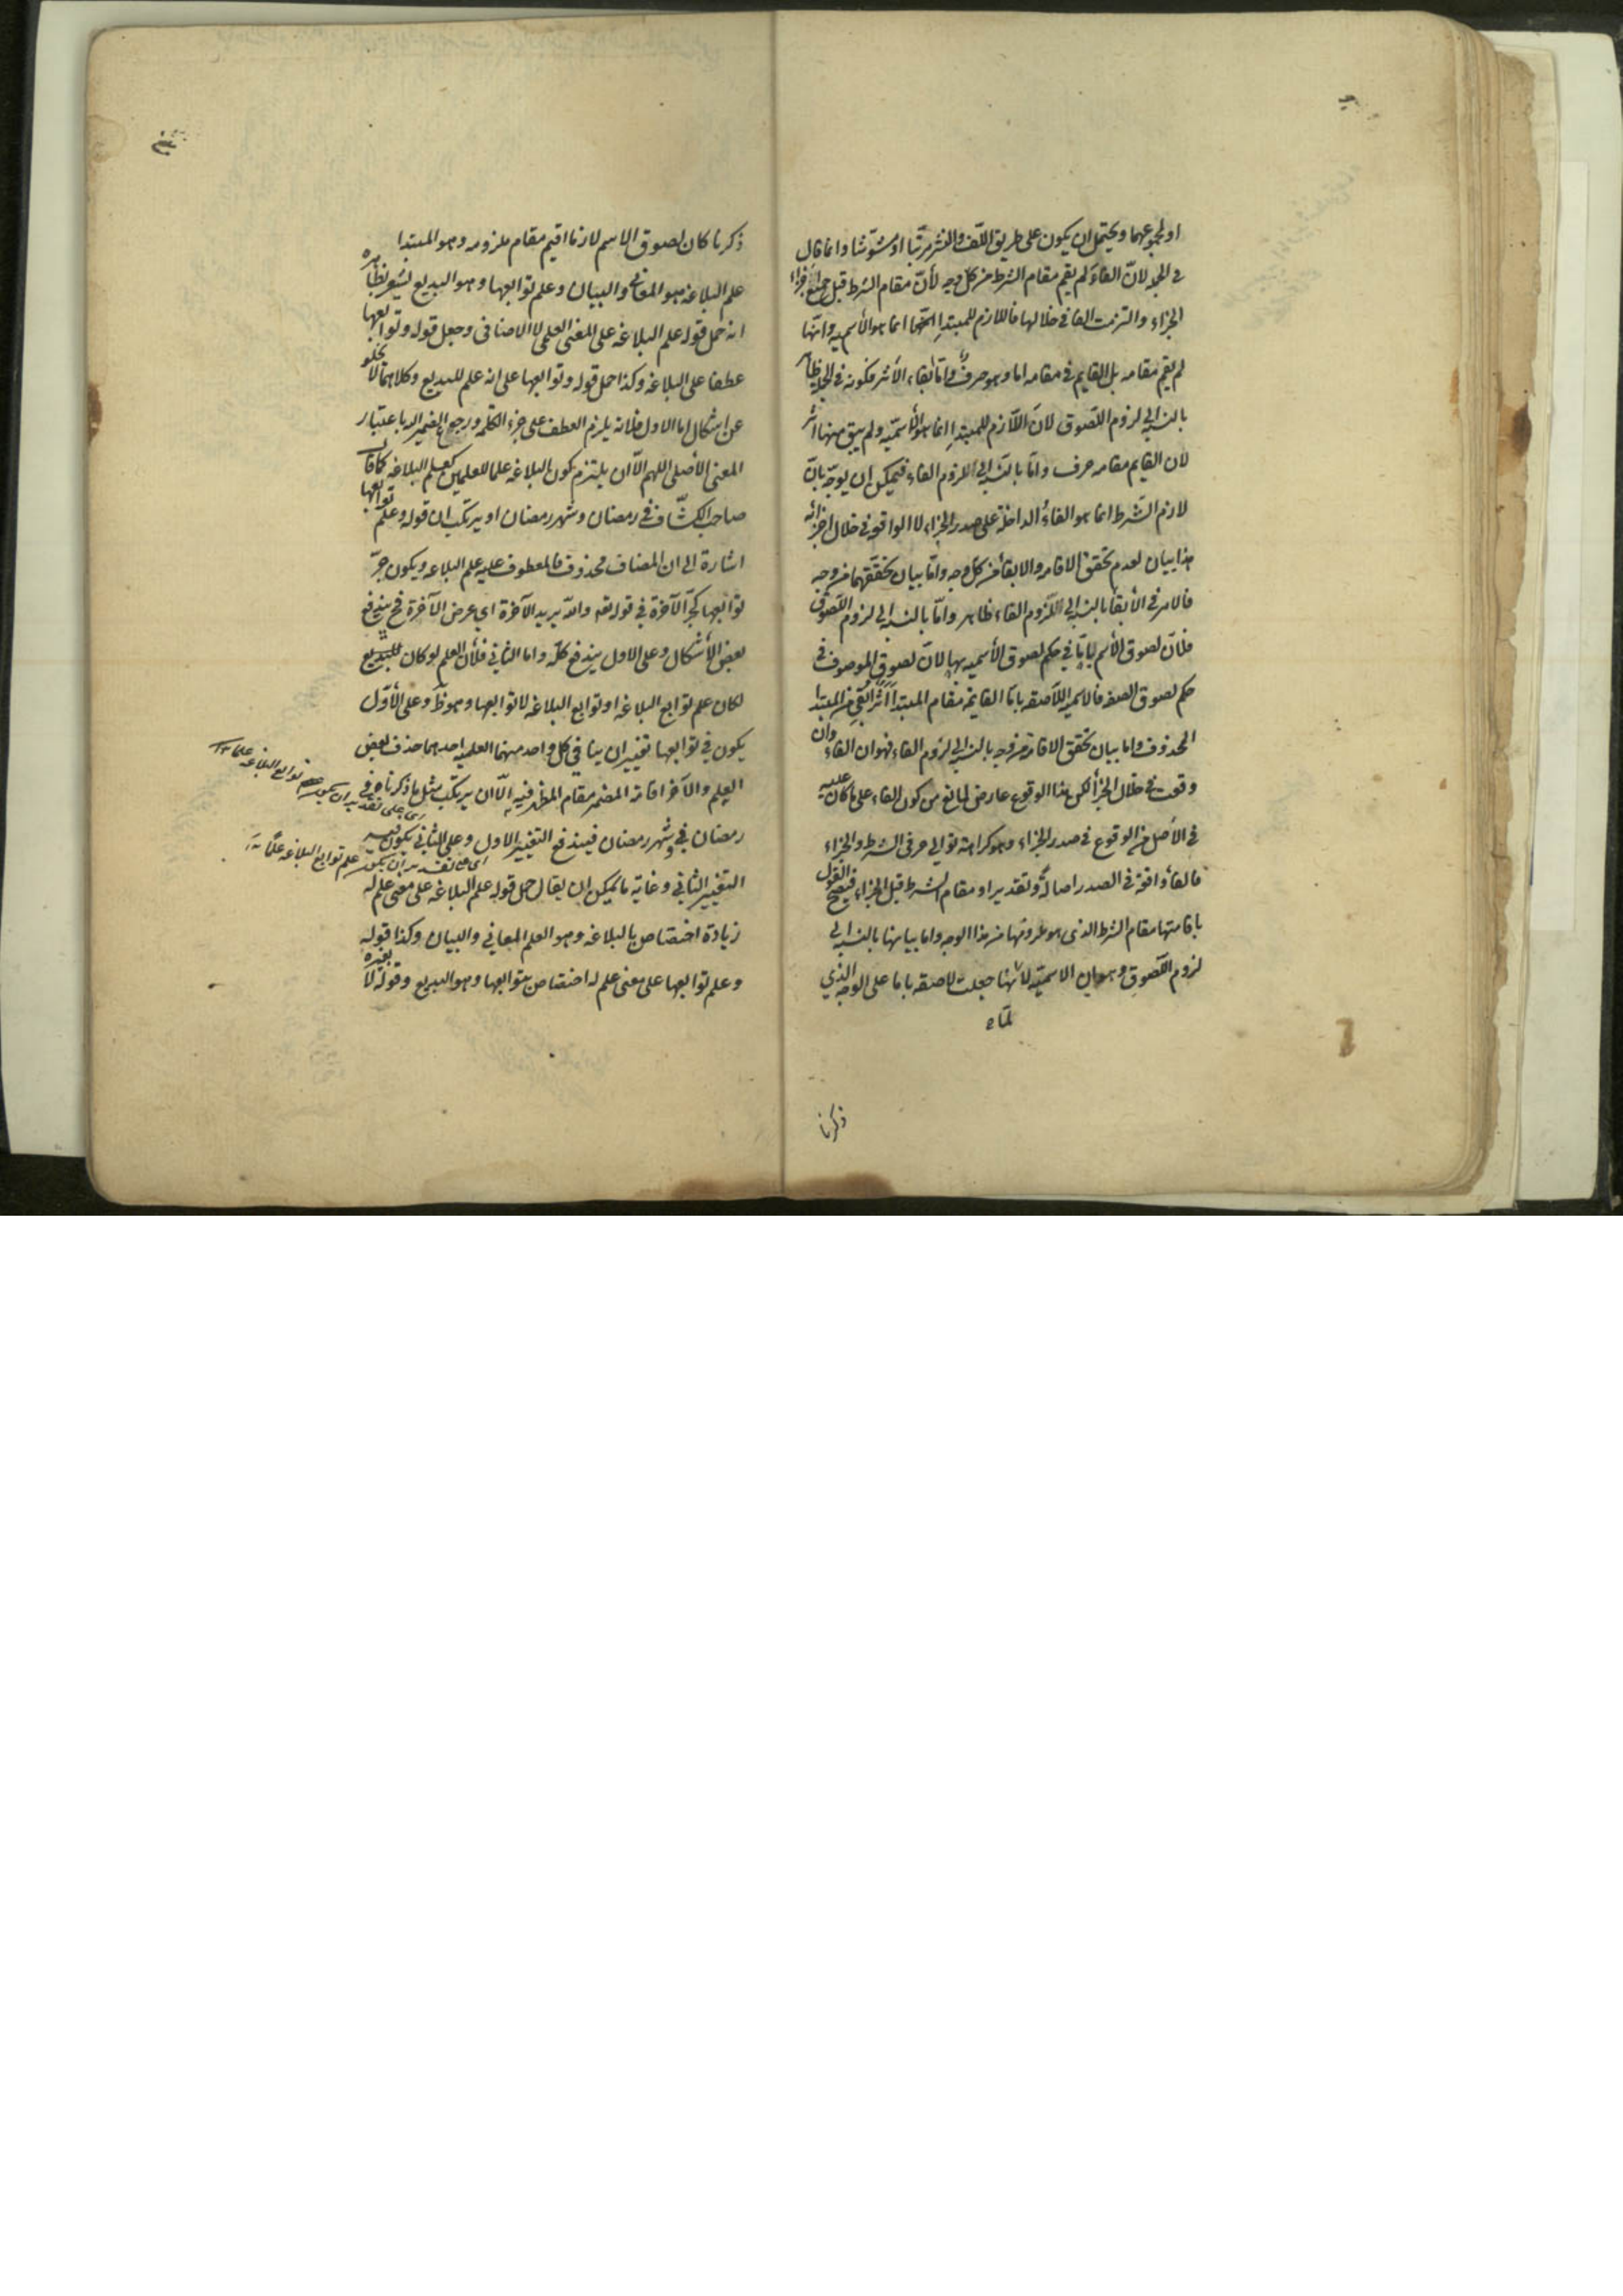 او لمجموعهما ويحتمل ان يكون على طريق اللّف والنشر مرتّبا او مشوّشا وانما قال
في الجملة لانّ الفاء لم يقم مقام الشرط من كل وجه لأنّ مقام الشرط قبل جميع اجزاء
الجزاء والتزمت الفا في خلالها فاللازم للمبتدا انما هو الأسمية وانّها
لم يقم مقامه بل القايم في مقامه اما وهو حرف وامّا بقاء الأثر فكونه في الجملة ظاهر
بالنسبة الى لزوم اللّصوق لانّ اللّازم للمبتدا انما هو الأسميّة ولم يبق منها اثر
لان القايم مقامه حرف وامّا بالنسبة الى لزوم الفاء فيمكن ان يوجّه بانّ
لازم الشّرط انما هو الفاءُ الداخلة على صدر الجزاء لا الواقعة في خلال اجزائه
هذا بيان لعدم تحقق الاقامة والابقاء من كل وجه وامّا بيان تحققهما من وجه
فالامر في الأبقاء بالنسبة الى اللّزوم الفاء ظاهر وامّا بالنسبة الى لزوم اللّصوق
فلانّ لصوق الأسم بامّا في حكم لصوق الأسمية بها لانّ لصوق الموصوف في
حكم لصوق الصفة فالاسمية اللّاصقة بامّا القايمة مقام المبتدا اثر بقي من المبتدا
المحذوف واما بيان تحقق الاقامة من وجه بالنسبة الى لزوم الفاء فهو ان الفاء وان
وقعت في خلال الجزاء لكن هذا الوقوع عارض لمانع من كون الفاء على ما كان عليه
في الأصل من الوقوع في صدر الجزاء وهو كراهة توالي حرفى الشرط والجزاء
فالفاء واقعة في الصدر اصالةً وتقديرا ومقام الشرط قبل الجزاء فيصح القول
باقامتها مقام الشرط الذى هو ملزومها من هذا الوجه واما بيانها بالنسبة الى
لزوم اللّصوق وهو ان الاسميّة لانّها جعلت لاصقة باما على الوجه الذي
لمّا
ذكرنا
ذكرنا كان لصوق الاسم لازما اقيم مقام ملزومه وهو المبتدا
علم البلاغة هو المعاني والبيان وعلم توابعها وهو البديع يشعر بظاهره
انه حمل قوله علم البلاغة على المعنى العلمي لا الاضافى وجعل قوله وتوابعها
عطفا على البلاغة وكذا حمل قوله وتوابعها على انه علم للبديع وكلاهما لا يخلو
عن اشكال اما الاول فلانه يلزم العطف على جزء الكلمة ورجع الضمير اليه باعتبار
المعنى الأصلى اللهم الّا ان يلتزم كون البلاغة علما للعلمين كعلم البلاغة كما قال
صاحب الكشّاف في رمضان وشهر رمضان او يرتكب ان قوله وعلم توابعها
اشارة الى ان المضاف محذوف فالمعطوف عليه علم البلاغة ويكون جرّ
توابعها كجرّ الآخرة في قوله تعه والله يريد الآخرة اي عرض الآخرة فح يندفع
بعض الأشكال وعلى الاول يندفع كلّه واما الثاني فلأن العلم لو كان للبديع
لكان علم توابع البلاغة او توابع البلاغة لا توابعها وهو ظ وعلى الأوّل
يكون في توابعها تغييران ينافي كل واحد منهما العلمية احدهما حذف بعض
العلم والآخر اقامة المضمر مقام المظهر فيه الّا ان يرتكب مثل ما ذكرنا من
رمضان في شهر رمضان فيندفع التغيير الاول وعلى الثاني يكون فيه
التغيير الثاني وغاية ما يمكن ان يقال حمل قوله علم البلاغة على معنى علم له
زيادة اختصاص بالبلاغة وهو العلم المعاني والبيان وكذا قوله
وعلم توابعها على معنى علم له اختصاص بتوابعها وهو البديع وقوله لا بغيره
اى على تقدير ان يكون توابع البلاغة علما
اى على تقدير ان يكون علم توابع البلاغة علمًا